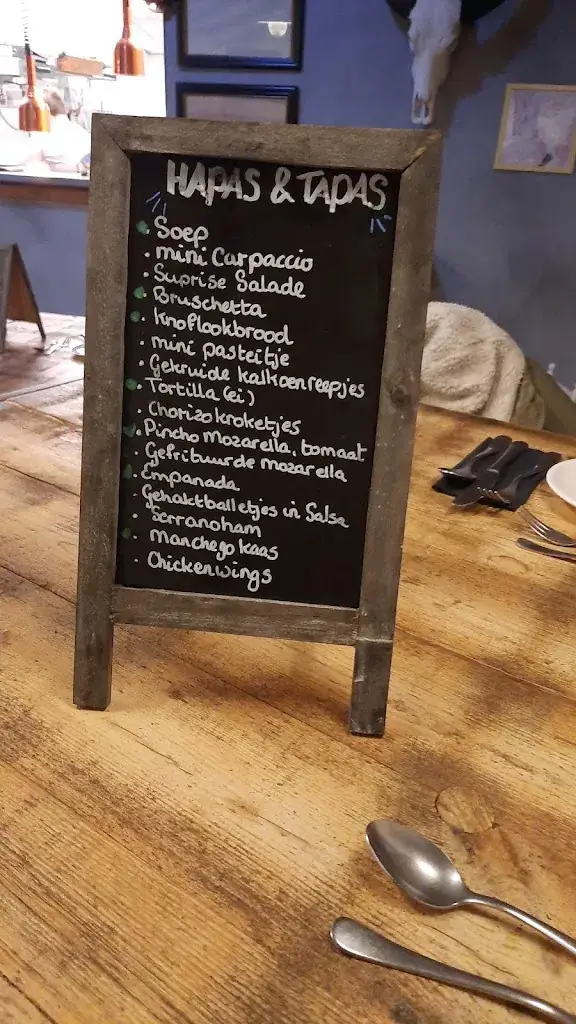 HAPAS & TAPAS
• Soep
• mini Carpaccio
• Suprise Salade
• Bruschetta
• Knoflookbrood
• mini pasteitje
• Gekruide kalkoenreepjes
• Tortilla (ei)
• Chorizokroketjes
• Pincho Mozarella, tomaat
• Gefrituurde mozarella
• Empanada
• Gehaktballetjes in Salsa
• Serranoham
• Manchego kaas
• Chickenwings